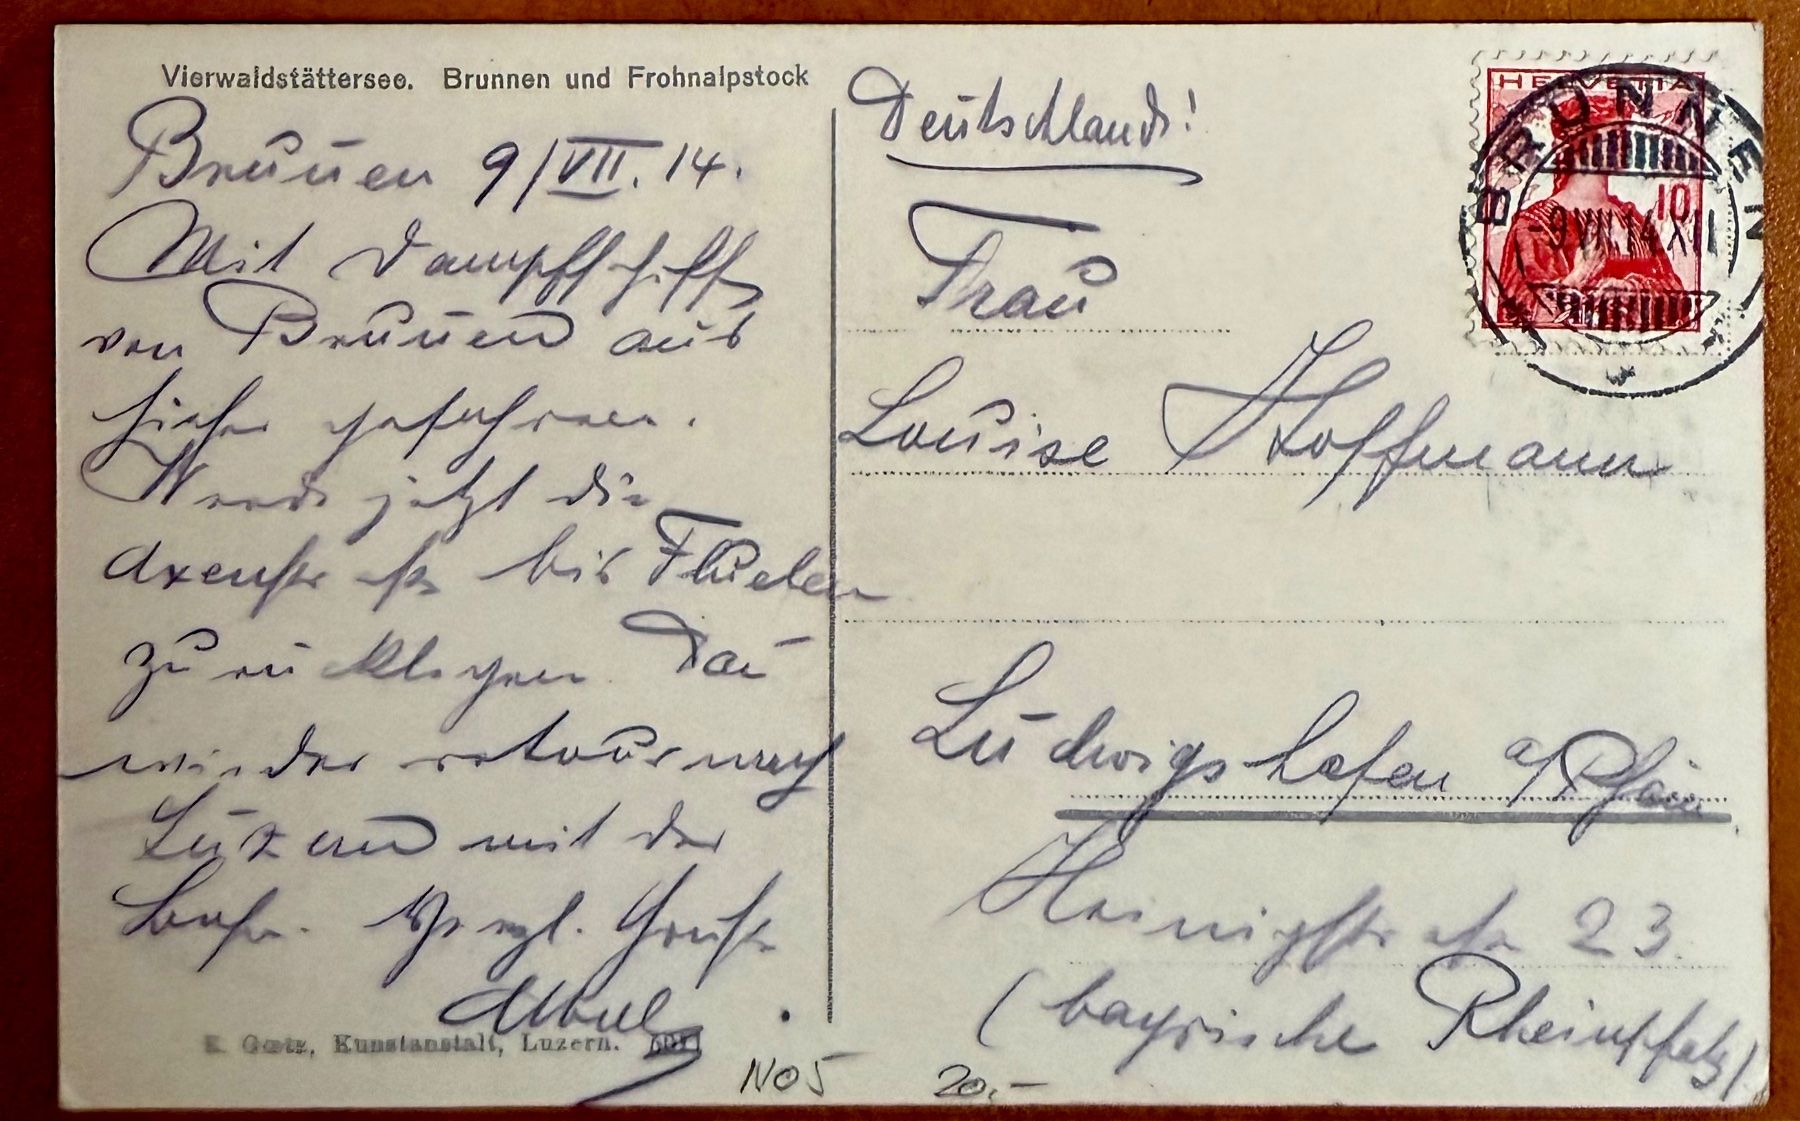 Vierwaldstättersee. Brunnen und Frohnalpstock
Brunnen 9/VII. 14.
Mit Dampfschiff
von Brunnen aus
hieher gefahren.
Werde jetzt die
Axenstraße bis Fluelen
zurücklegen. Dann
wieder retour nach
Luzern mit der
Bahn. Herzl. Grüße
K. Goetz, Kunstanstalt, Luzern.
Deutschland!
Frau
Louise Hoffmann
Ludwigshafen a/Rhein
Heinigstraße 23.
(bayrische Rheinpfalz)
HELVETIA
10
BRUNNEN
-9.VII.14.XII
NO5
20.-